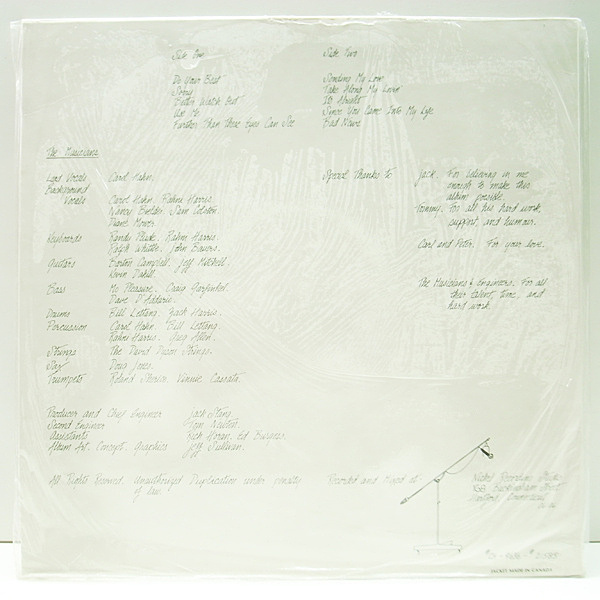 Side One
Do Your Best
Sorry
Better Watch Out
Use Me
Further Than These Eyes Can See
Side Two
Sending My Love
Take Along My Lovin'
It's Alright
Since You Came Into My Life
Bad News
The Musicians
Lead Vocals Carol Hahn.
Background
Vocals Carol Hahn. Rahni Harris.
Nancy Sam
Diane Mower.
Keyboards Rahni Harris.
Ralph Whittle. John Bowers.
Guitars Barton Campbell. Jeff Mitchell.
Kevin
Bass Mo Pleasure. Craig Garfinkel.
Dave D'Addario.
Drums Bill Zack Harris.
Percussion Carol Hahn. Bill
Rahni Harris. Greg Allen.
Strings The David Strings.
Sax Doug Jones.
Trumpets Roland Vinnie Cassata.
Special Thanks to Jack. For believing in me
enough to make this
album possible.
Tommy. For all his hard work,
support, and humour.
Carl and Peter. For your love.
The Musicians & Engineers. For all
their talent, time, and
hard work.
Producer and Chief Engineer Jack
Second Engineer Tom
Assistants Rich Ed
Album Art. Concept. Graphics Jeff Sullivan.
All Rights Reserved. Unauthorized Duplication under penalty
of law.
Recorded and Mixed at
Recording
JACKET MADE IN CANADA